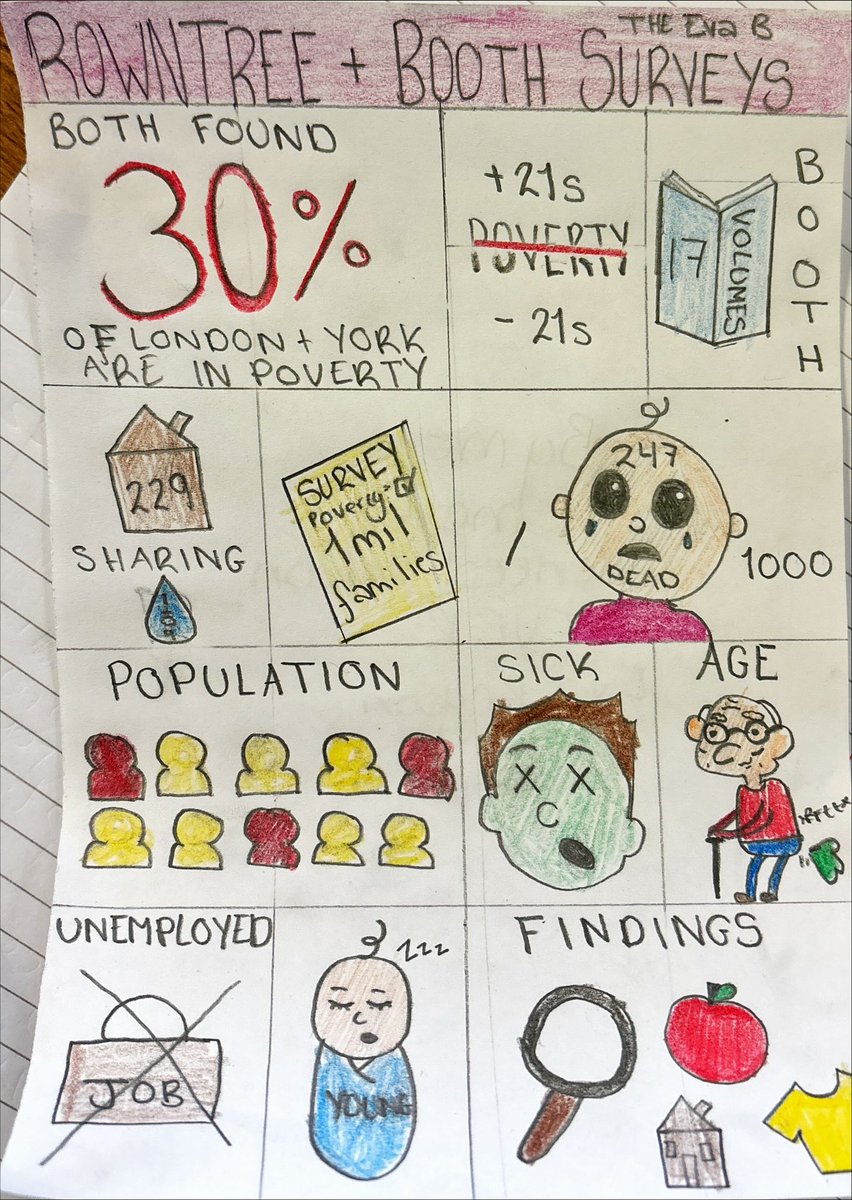 THE Eva B
ROWNTREE + BOOTH SURVEYS
BOTH FOUND
30%
OF LONDON + YORK
ARE IN POVERTY
+21s
POVERTY
- 21s
17 VOLUMES
BOOTH
229
SHARING
SURVEY
Poverty
1mil
families
/
247
DEAD
1000
POPULATION
SICK
AGE
UNEMPLOYED
JOB
zzz
YOUNG
FINDINGS